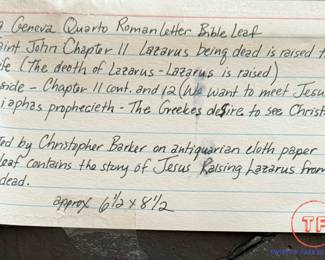 a Geneva Quarto Roman Letter Bible Leaf
aint John Chapter 11 Lazarus being dead is raised t
fe (The death of Lazarus - Lazarus is raised)
side - Chapter 11 cont. and 12 (We want to meet Jesu
iaphas prophecieth - The Greekes desire to see Christ
ted by Christopher Barker on antiquarian cloth paper
leaf contains the story of Jesus Raising Lazarus from
dead.
approx 6 1/2 x 8 1/2
TF